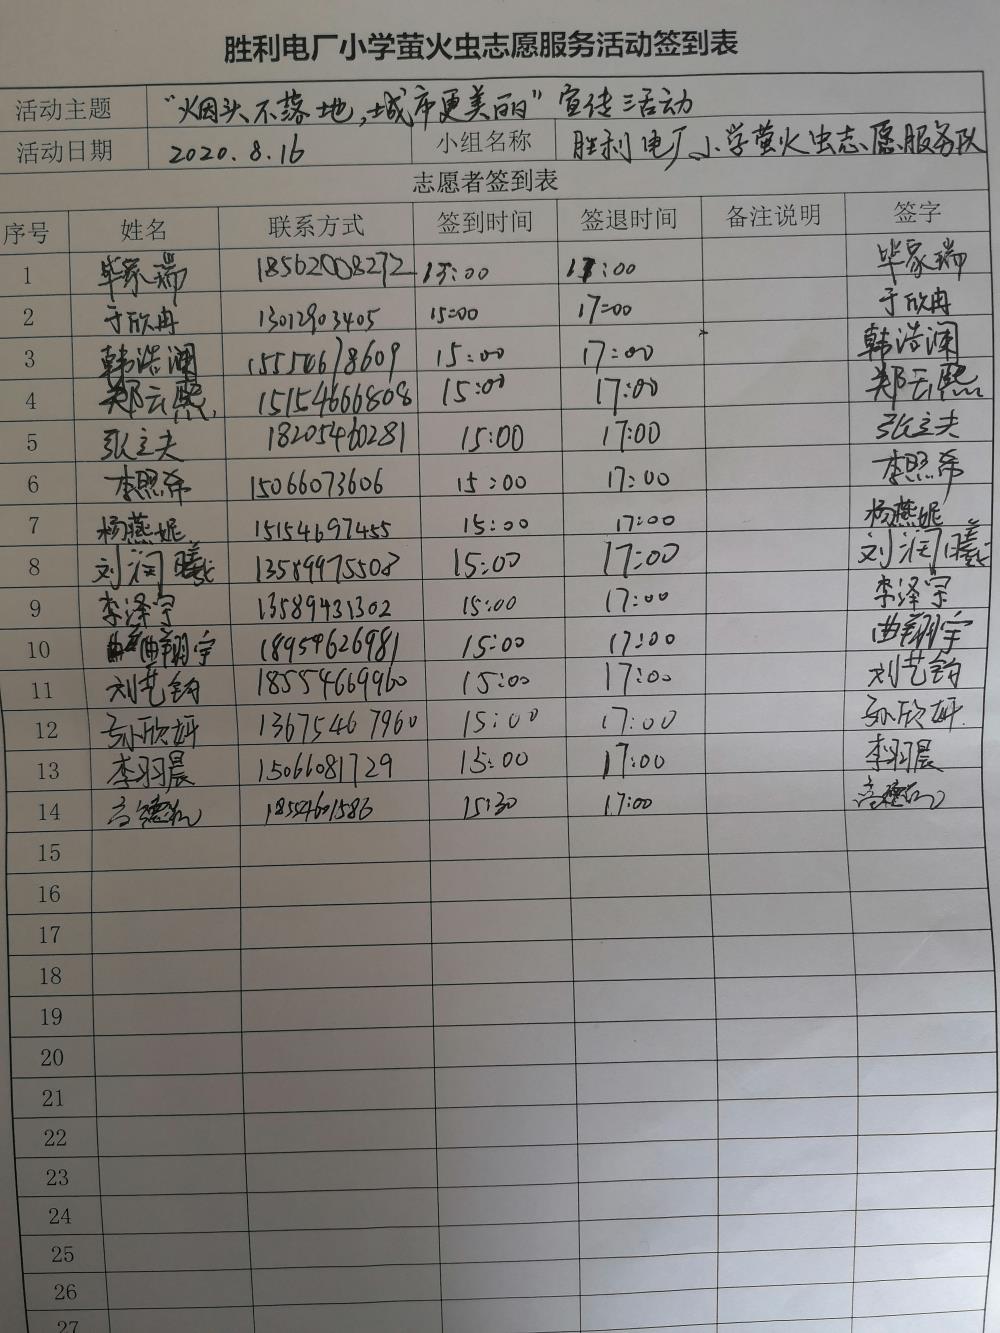 胜利电厂小学萤火虫志愿服务活动签到表
活动主题 “烟头不落地,城市更美丽”宣传活动
活动日期 2020.8.16 小组名称 胜利电厂小学萤火虫志愿服务队
志愿者签到表
序号 姓名 联系方式 签到时间 签退时间 备注说明 签字
1 毕家瑞 18562008272 15:00 17:00 毕家瑞
2 于欣冉 13012903405 15:00 17:00 于欣冉
3 韩浩澜 15554678609 15:00 17:00 韩浩澜
4 郑云熙 15154666808 15:00 17:00 郑云熙
5 张立夫 18205460281 15:00 17:00 张立夫
6 李照希 15066073606 15:00 17:00 李照希
7 杨燕妮 15154697455 15:00 17:00 杨燕妮
8 刘润曦 13589975508 15:00 17:00 刘润曦
9 李泽宇 13589431302 15:00 17:00 李泽宇
10 曲翔宇 18954626981 15:00 17:00 曲翔宇
11 刘艺钧 18554669960 15:00 17:00 刘艺钧
12 孙欣妍 13675467960 15:00 17:00 孙欣妍
13 李羽晨 15066081729 15:00 17:00 李羽晨
14 18554601586 15:30 17:00
15
16
17
18
19
20
21
22
23
24
25
26
27